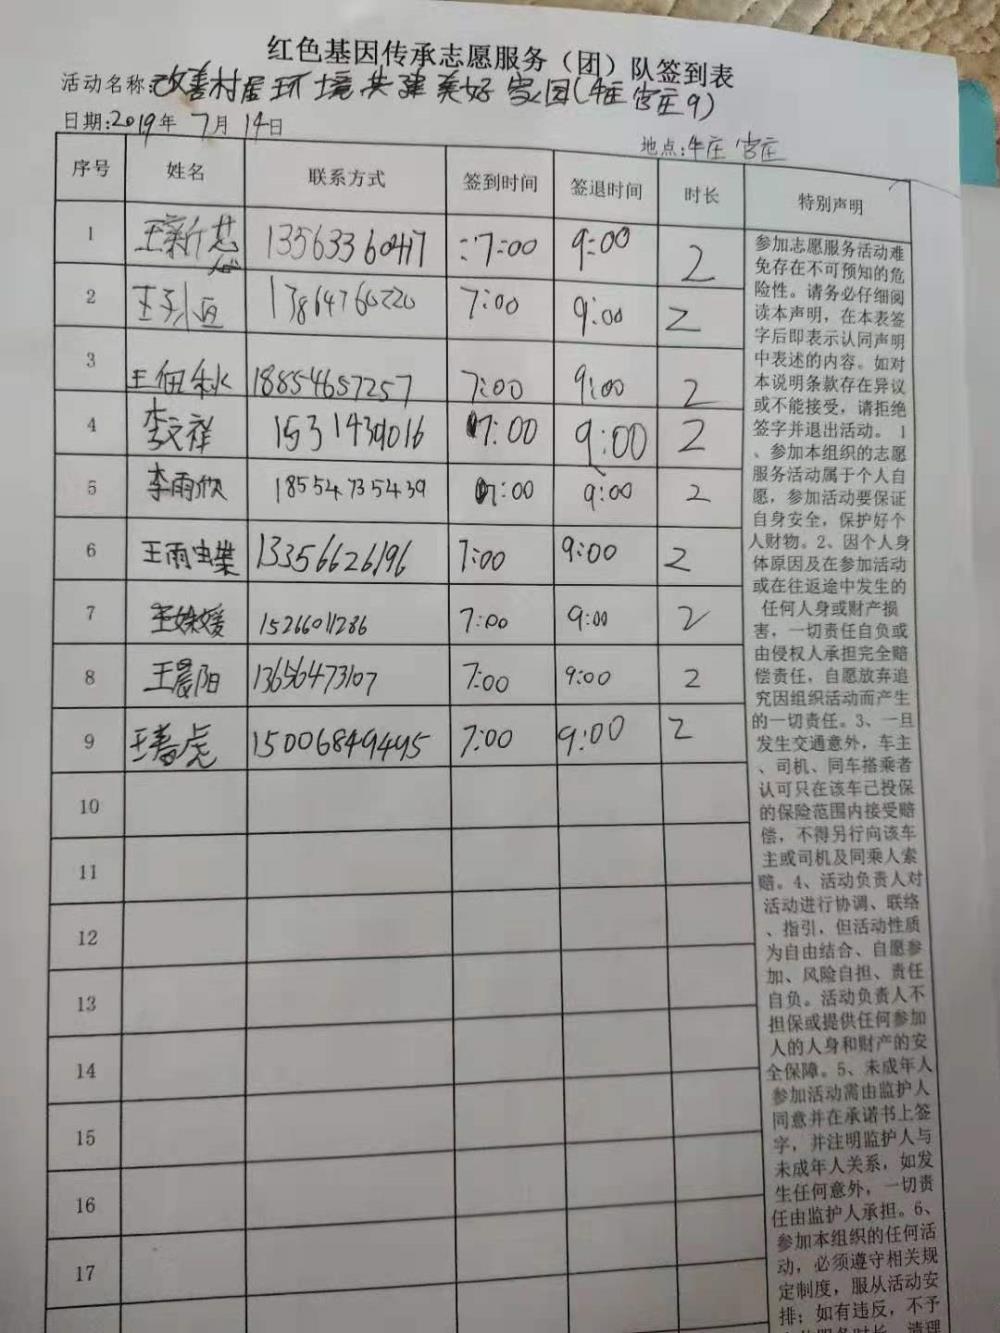 红色基因传承志愿服务（团）队签到表
活动名称:改善村居环境共建美好家园(牛庄 宫庄9)
日期:2019年 7月 14日
地点:牛庄 宫庄
序号 姓名 联系方式 签到时间 签退时间 时长 特别声明
1 王新 13563360417 7:00 9:00 2
2 13864760220 7:00 9:00 2
3 王佃秋 18854657257 7:00 9:00 2
4 李文祥 1531439016 7:00 9:00 2
5 李雨欣 18554735439 7:00 9:00 2
6 王雨 13356626196 7:00 9:00 2
7 王姝媛 15266011286 7:00 9:00 2
8 王晨阳 13656473107 7:00 9:00 2
9 王春虎 15006849495 7:00 9:00 2
10
11
12
13
14
15
16
17
参加志愿服务活动难
免存在不可预知的危
险性。请务必仔细阅
读本声明，在本表签
字后即表示认同声明
中表述的内容。如对
本说明条款存在异议
或不能接受，请拒绝
签字并退出活动。 1
、参加本组织的志愿
服务活动属于个人自
愿，参加活动要保证
自身安全，保护好个
人财物。2、因个人身
体原因及在参加活动
或在往返途中发生的
任何人身或财产损
害，一切责任自负或
由侵权人承担完全赔
偿责任，自愿放弃追
究因组织活动而产生
的一切责任。3、一旦
发生交通意外，车主
、司机、同车搭乘者
认可只在该车己投保
的保险范围内接受赔
偿，不得另行向该车
主或司机及同乘人索
赔。4、活动负责人对
活动进行协调、联络
、指引，但活动性质
为自由结合、自愿参
加、风险自担、责任
自负。活动负责人不
担保或提供任何参加
人的人身和财产的安
全保障。5、未成年人
参加活动需由监护人
同意并在承诺书上签
字，并注明监护人与
未成年人关系，如发
生任何意外，一切责
任由监护人承担。6、
参加本组织的任何活
动，必须遵守相关规
定制度，服从活动安
排；如有违反，不予